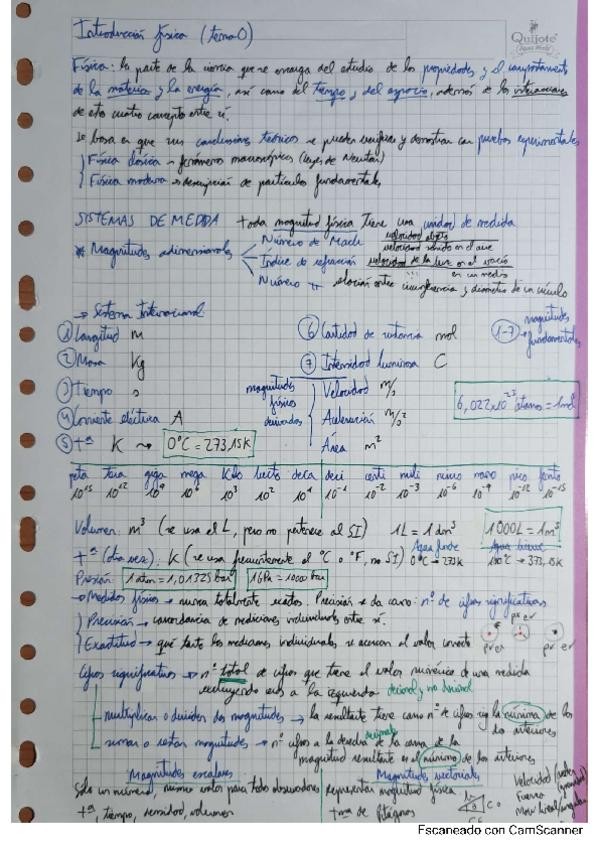 Introducción física (tema 0)
Quijote
Física: la parte de la ciencia que se encarga del estudio de las propiedades y el comportamiento
de la materia y la energía, así como del tiempo y del espacio, además de las interacciones
de estos cuatro conceptos entre sí.
Se basa en que sus conclusiones teóricas se pueden verificar y demostrar con pruebas experimentales
Física clásica → fenómenos macroscópicos (leyes de Newton)
Física moderna → descripción de partículas fundamentales
SISTEMAS DE MEDIDA toda magnitud física tiene una unidad de medida
* Magnitudes adimensionales
Número de Mach velocidad objeto
velocidad sonido en el aire
Índice de refracción velocidad de la luz en el vacío
en un medio
Número π relación entre circunferencia y diámetro de un círculo
→ Sistema Internacional:
① Longitud m
⑥ Cantidad de sustancia mol
1-7 → magnitudes fundamentales
② Masa Kg
⑦ Intensidad luminosa C
③ Tiempo s
magnitudes físicas derivadas
Velocidad m/s
6,022x10²³ átomos = 1mol
④ Corriente eléctrica A
Aceleración m/s²
⑤ tª K → 0ºC = 273,15K
Área m²
peta tera giga mega Kilo hecto deca deci centi mili micro nano pico femto
10¹⁵ 10¹² 10⁹ 10⁶ 10³ 10² 10¹ 10⁻¹ 10⁻² 10⁻³ 10⁻⁶ 10⁻⁹ 10⁻¹² 10⁻¹⁵
Volumen: m³ (se usa el L, pero no pertenece al SI) 1L = 1dm³ 1000L = 1m³
tª (otra vez): K (se usa frecuentemente el ºC o ºF, no SI)
Agua funde 0ºC → 273K
Agua hierve 100ºC → 373,15K
Presión: 1atm = 1,01325 bar
→ Medidas físicas → nunca totalmente exactas. Precisión se da como: nº de cifras significativas
Precisión → concordancia de mediciones individuales entre sí.
Exactitud → qué tanto las mediciones individuales se acercan al valor correcto
Cifras significativas → nº total de cifras que tiene el valor numérico de una medida
excluyendo ceros a la izquierda decimal y no decimal
multiplicar o dividir dos magnitudes → la resultante tiene como nº de cifras sig la mínima de las
anteriores
sumar o restar magnitudes → nº cifras a la derecha de la coma de la
decimales
magnitud resultante es el mínimo de las anteriores
Magnitudes escalares
Magnitudes vectoriales
Solo un número, mismo valor para todos observadores
representar magnitud física
Velocidad
Fuerza
tª, tiempo, densidad, volumen
tma de Pitágoras
Escaneado con CamScanner